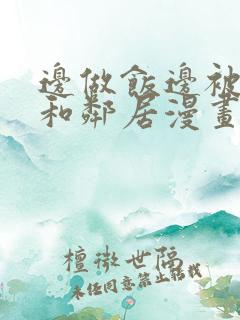 邊做飯邊被
和鄰居漫畫
檀微世隔
未任同意禁止轉載